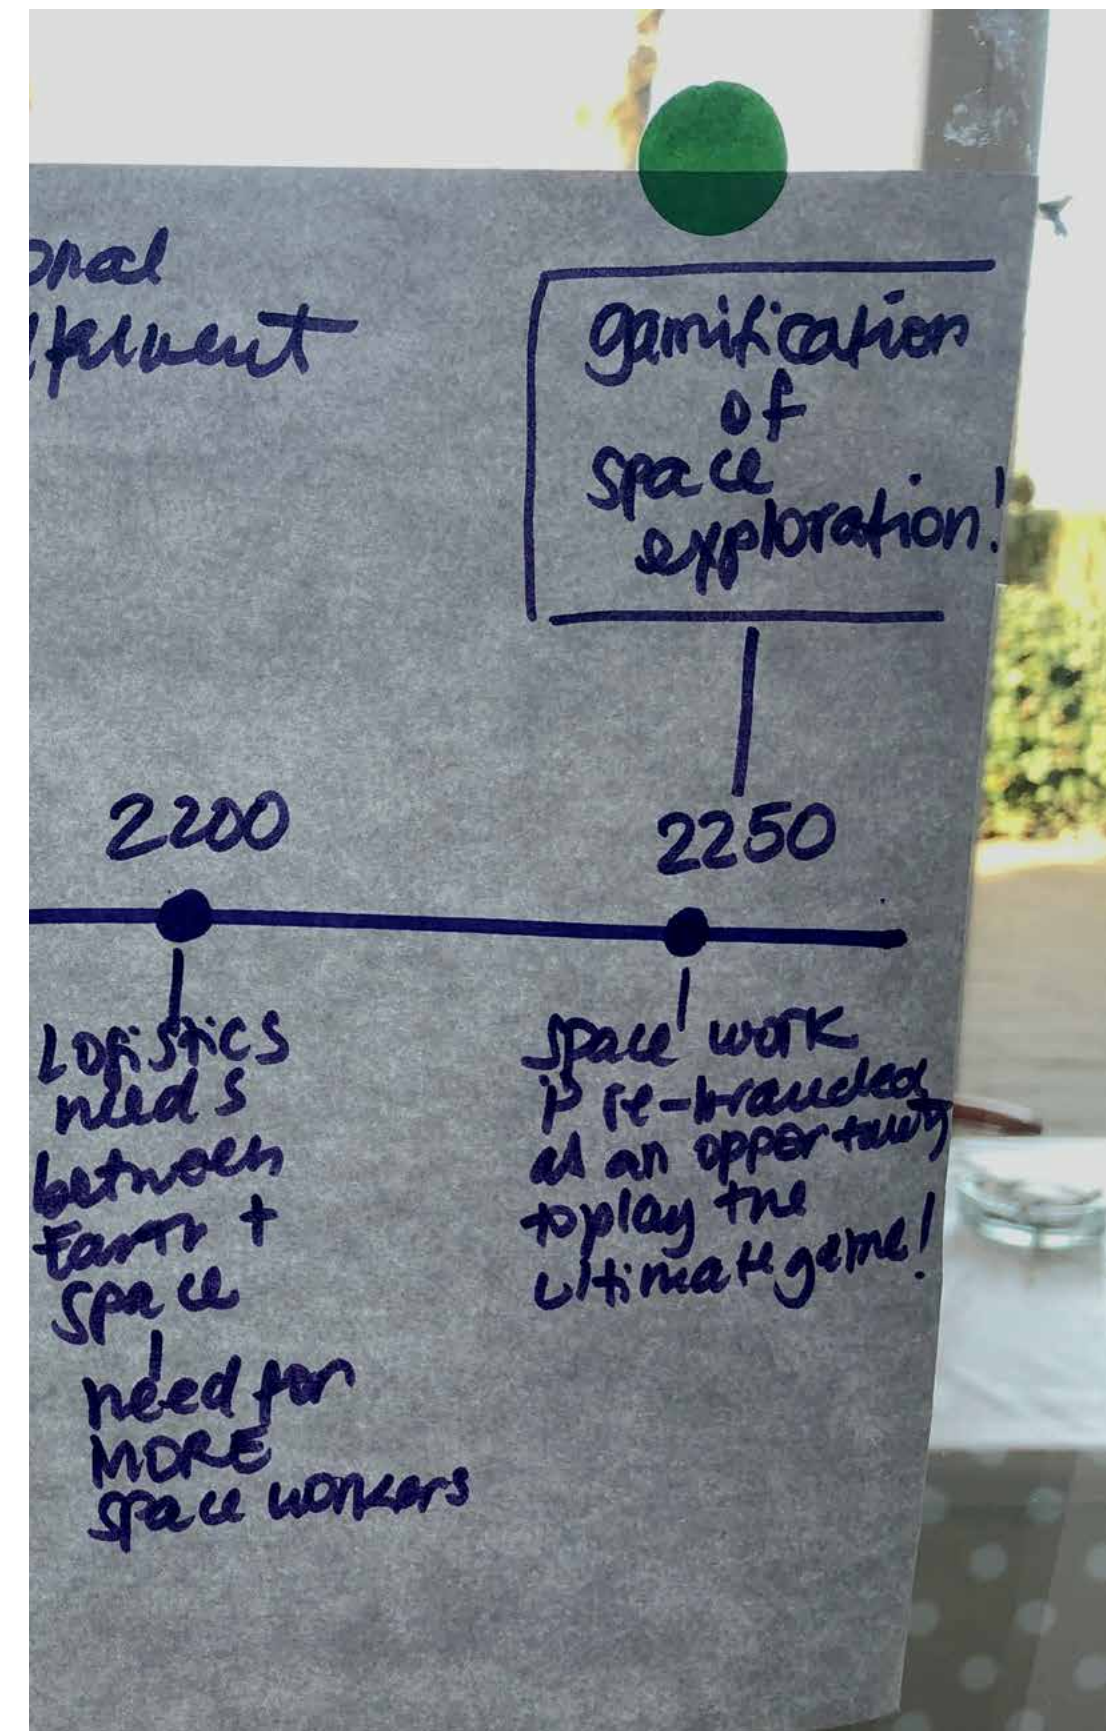 onal
gamification
of
space
exploration!
2200
2250
Logistics
needs
between
Earth +
space
need for
MORE
space workers
space work
is re-branded
as an opportunity
to play the
ultimate game!